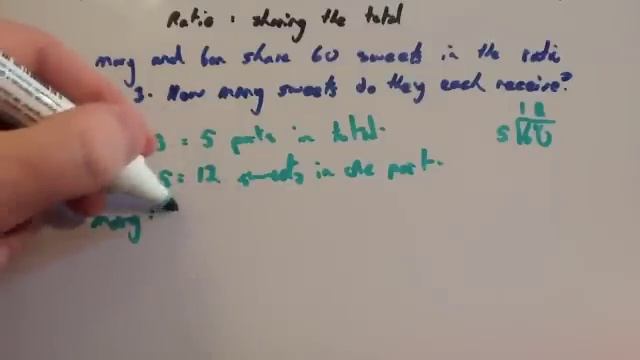 Ratio : sharing the total
mary and ben share 60 sweets in the ratio
3. How many sweets do they each receive?
3 = 5 parts in total.
5 = 12 sweets in one part.
12
5 60
mary :